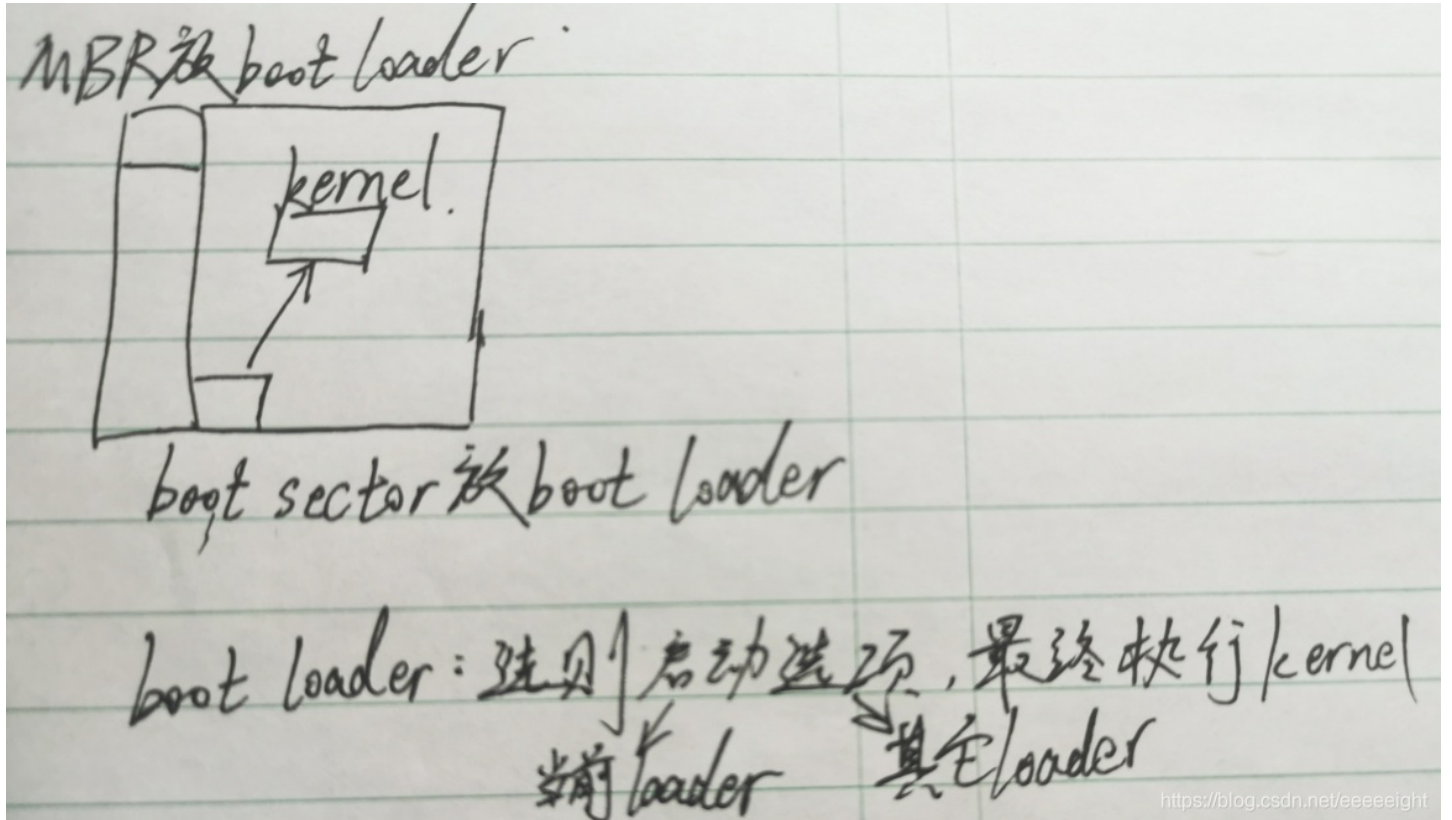 MBR放boot loader
kernel.
boot sector放boot loader
boot loader:选则启动选项,最终执行kernel
当前loader 其它loader
https://blog.csdn.net/eeeeeight